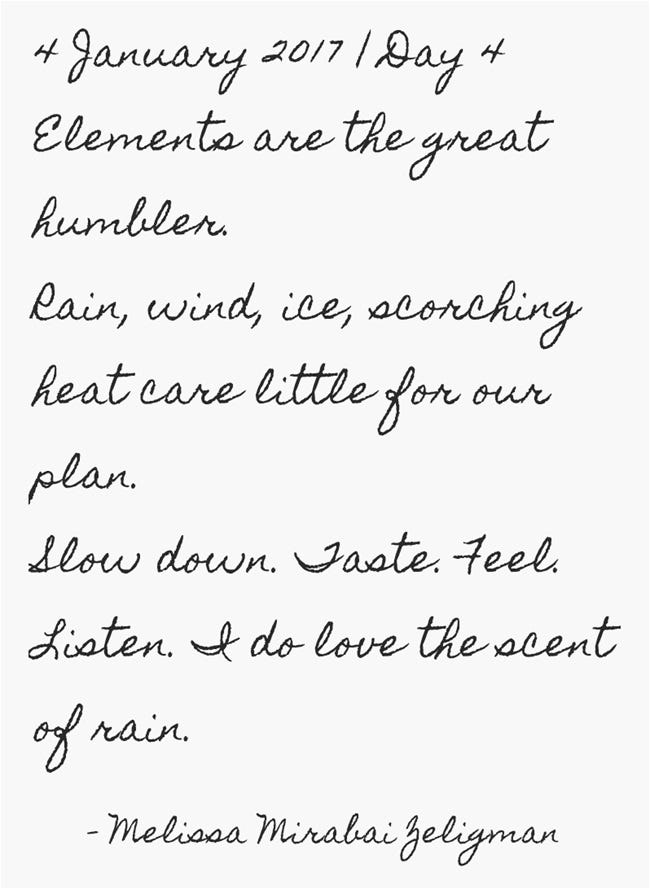 4 January 2017 | Day 4
Elements are the great
humbler.
Rain, wind, ice, scorching
heat care little for our
plan.
Slow down. Taste. Feel.
Listen. I do love the scent
of rain.
- Melissa Mirabai Zeligman